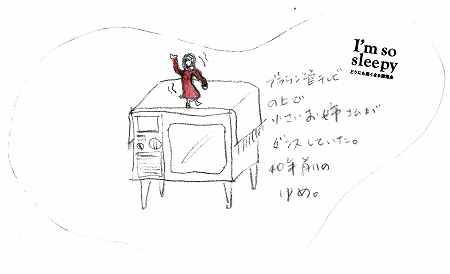 I'm so
sleepy
どうにも眠くなる展覧会
ブラウン管テレビ
の上で
小さいお姉さんが
ダンスしていた。
40年前の
ゆめ。